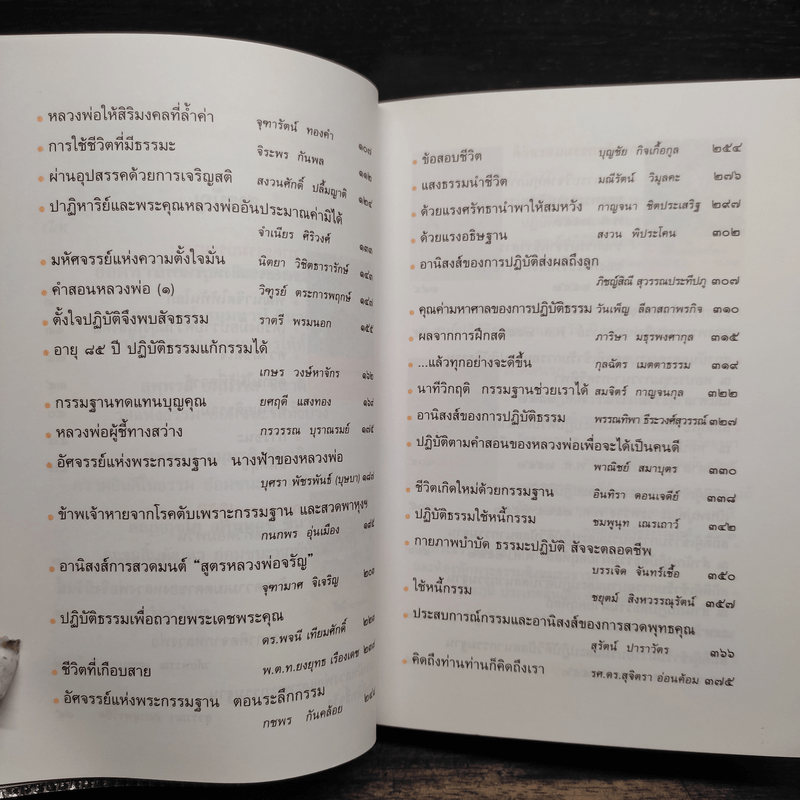 หลวงพ่อให้สิริมงคลที่ล้ำค่า
จุฑารัตน์ ทองคำ ๑๐๗
การใช้ชีวิตที่มีธรรมะ
จิระพร กันพล ๑๑๒
ผ่านอุปสรรคด้วยการเจริญสติ
สงวนศักดิ์ ปลื้มญาติ ๑๒๔
ปาฏิหาริย์และพระคุณหลวงพ่ออันประมาณค่ามิได้
จำเนียร ศิริวงศ์ ๑๓๑
มหัศจรรย์แห่งความตั้งใจมั่น นิตยา วิชิตธารารักษ์ ๑๔๑
คำสอนหลวงพ่อ (๑) วิฑูรย์ ตระการพฤกษ์
ตั้งใจปฏิบัติจึงพบสัจธรรม ราตรี พรมนอก ๑๕๕
อายุ ๘๕ ปี ปฏิบัติธรรมแก้กรรมได้
เกษร วงษ์หาจักร ๑๖๒
กรรมฐานทดแทนบุญคุณ ยศฤดี แสงทอง
หลวงพ่อผู้ชี้ทางสว่าง กรวรรณ บุราณรมย์
อัศจรรย์แห่งพระกรรมฐาน นางฟ้าของหลวงพ่อ
บุศรา พัชรพันธ์ (บุษบา)
ข้าพเจ้าหายจากโรคตับเพราะกรรมฐาน และสวดพาหุงฯ
กนกพร อุ่นเมือง ๑๙๕
อานิสงส์การสวดมนต์ “สูตรหลวงพ่อจรัญ”
จุฑามาศ จิเจริญ
ปฏิบัติธรรมเพื่อถวายพระเดชพระคุณ
ดร.พจนี เทียมศักดิ์
ชีวิตที่เกือบสาย พ.ต.ท.ยงยุทธ เรืองเดช
อัศจรรย์แห่งพระกรรมฐาน ตอนระลึกกรรม
กชพร กันคล้อย
ข้อสอบชีวิต บุญชัย กิจเกื้อกูล ๒๕๔
แสงธรรมนำชีวิต มณีรัตน์ วิมูลคะ ๒๗๖
ด้วยแรงศรัทธานำพาให้สมหวัง กาญจนา ชิตประเสริฐ ๒๙๗
ด้วยแรงอธิษฐาน สงวน พิประโคน ๓๐๒
อานิสงส์ของการปฏิบัติส่งผลถึงลูก
ภิชญ์สิณี สุวรรณประทีปภู ๓๐๗
คุณค่ามหาศาลของการปฏิบัติธรรม วันเพ็ญ ลีลาสถาพรกิจ ๓๑๐
ผลจากการฝึกสติ ภาริษา มธุรพงศากุล ๓๑๕
...แล้วทุกอย่างจะดีขึ้น กุลฉัตร เมตตาธรรม ๓๑๙
นาทีวิกฤติ กรรมฐานช่วยเราได้ สมจิตร์ กาญจนกุล ๓๒๒
อานิสงส์ของการปฏิบัติธรรม พรรณทิพา ธีระวงศ์สุวรรณ์ ๓๒๗
ปฏิบัติตามคำสอนของหลวงพ่อเพื่อจะได้เป็นคนดี
พาณิชย์ สมาบุตร ๓๓๐
ชีวิตเกิดใหม่ด้วยกรรมฐาน อินทิรา ดอนเจดีย์ ๓๓๘
ปฏิบัติธรรมใช้หนี้กรรม ชมพูนุท เณรเถาว์ ๓๔๒
กายภาพบำบัด ธรรมะปฏิบัติ สัจจะตลอดชีพ
บรรเจิด จันทร์เชื้อ ๓๕๐
ใช้หนี้กรรม ชยุตม์ สิงหวรรณุรัตน์ ๓๕๗
ประสบการณ์กรรมและอานิสงส์ของการสวดพุทธคุณ
สุรัตน์ ปาราวัตร ๓๖๖
คิดถึงท่านท่านก็คิดถึงเรา รศ.ดร.สุจิตรา อ่อนค้อม ๓๗๕